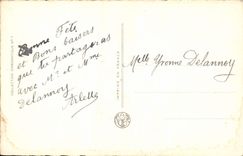 Bonne Fête
et Bons baisers
que tu partageras
avec Mr et Mme
Delannoy
Arlette
Melle Yvonne Delannoy